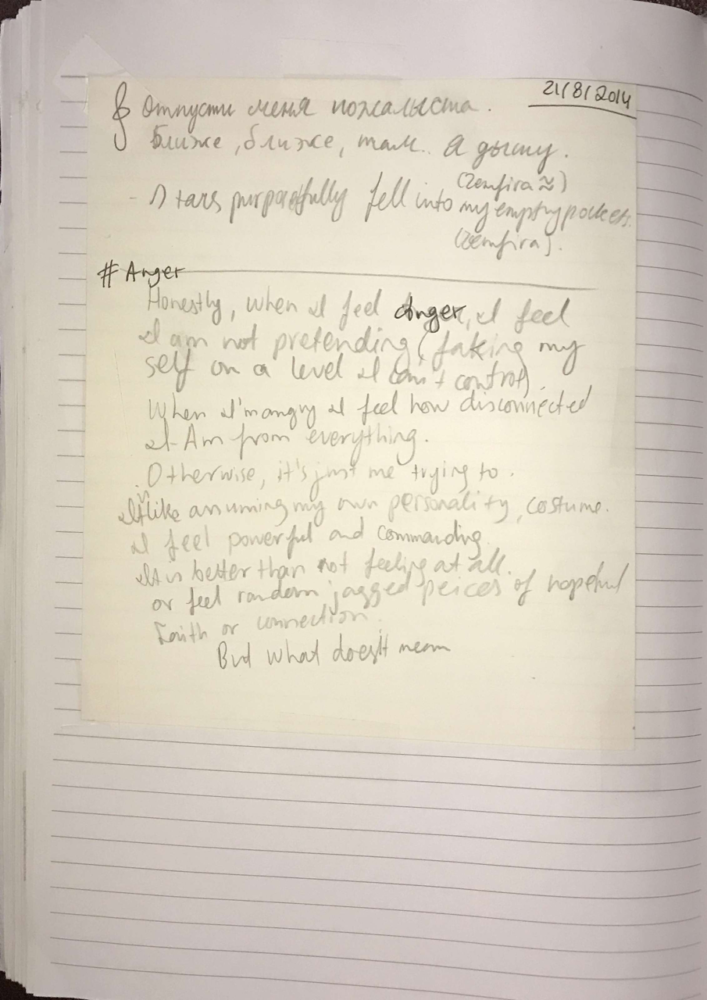 21/8/2014
Отпусти меня пожалыста.
Ближе, ближе, там.. Я дышу.
(Zemfira ≈)
- Stars purposefully fell into my empty pockets.
(Zemfira).
# Anger
Honestly, when I feel Anger, I feel
I am not pretending (faking my
self on a level I can't control).
When I'm angry I feel how disconnected
I Am from everything.
Otherwise, it's just me trying to.
It's like assuming my own personality, costume.
I feel powerful and commanding.
It is better than not feeling at all.
or feel random jagged peices of hopeful
faith or connection.
But what does it mean